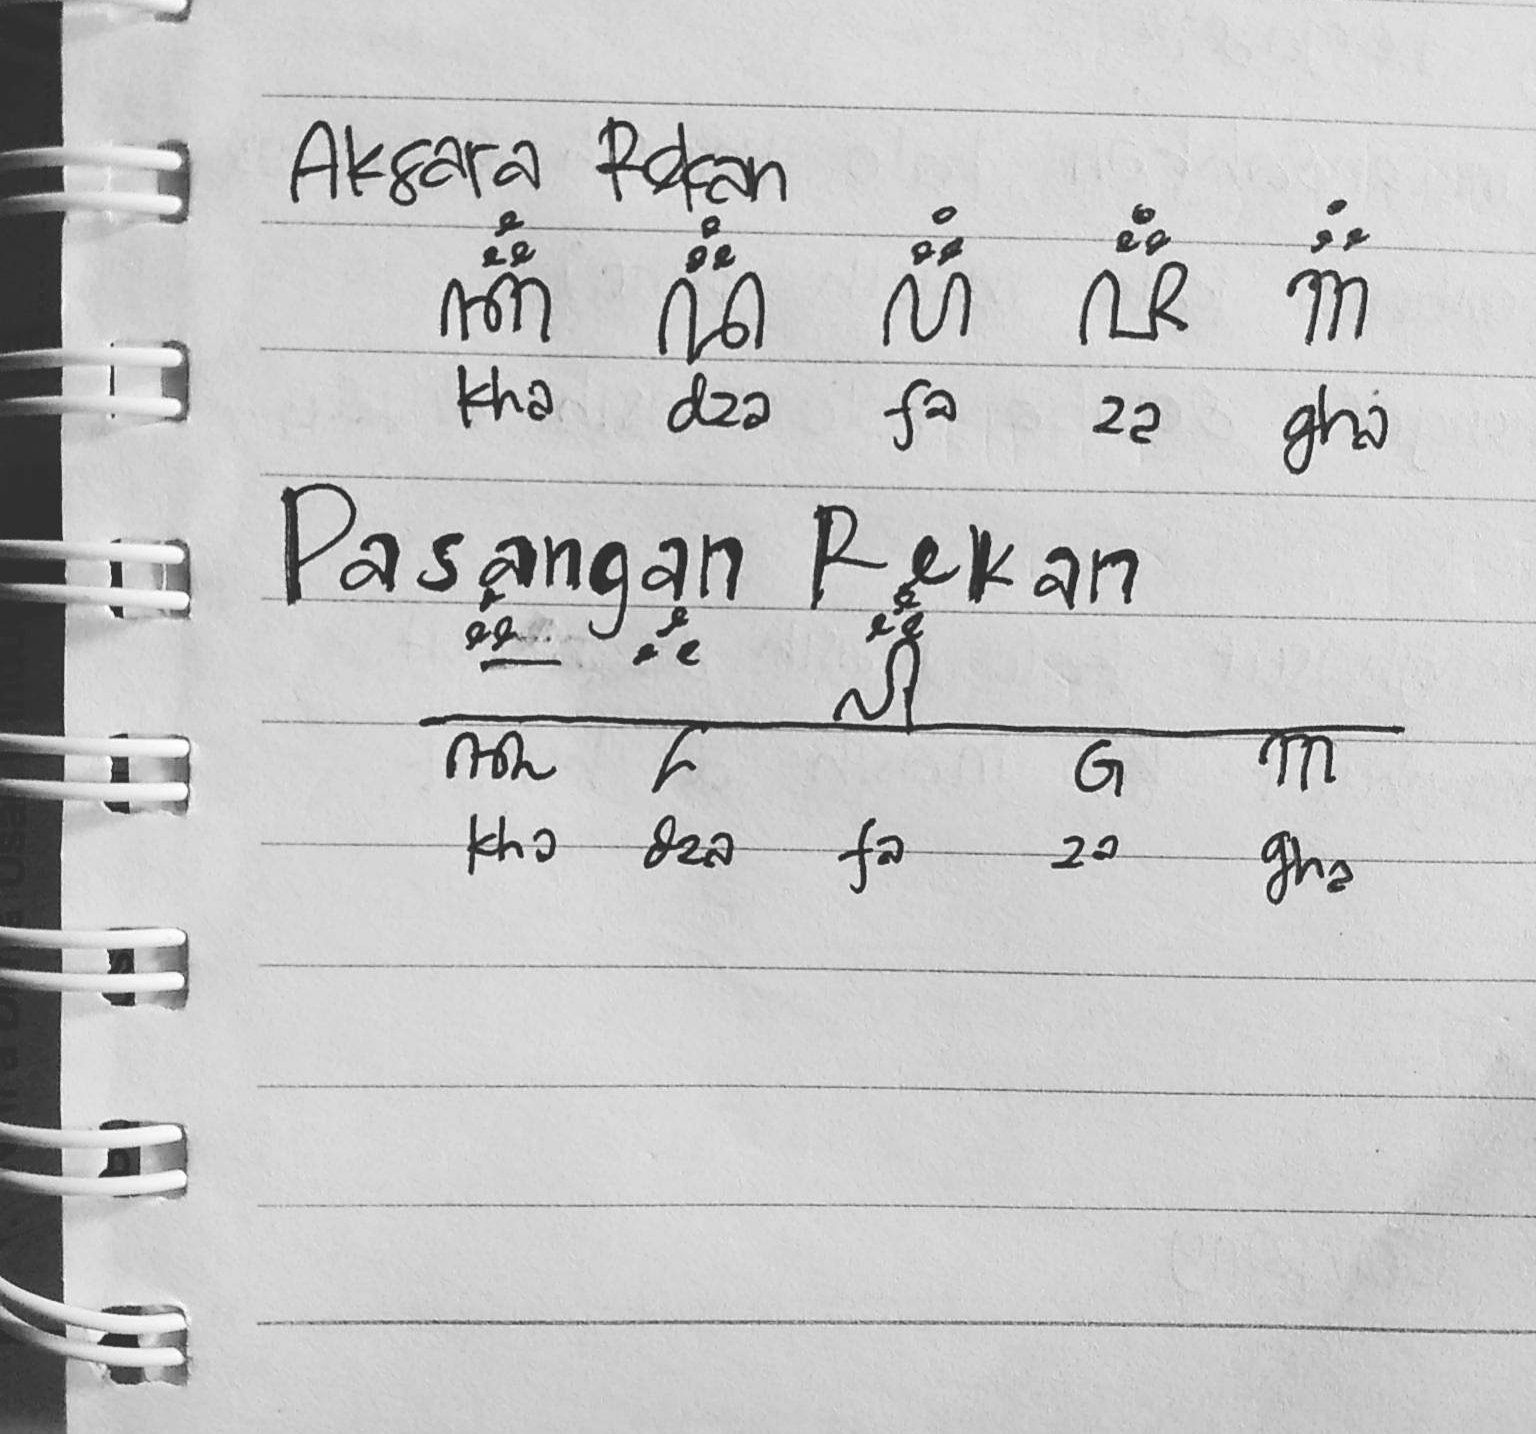 Aksara Rekan
ꦏ꦳ ꦢ꦳ ꦥ꦳ ꦗ꦳ ꦒ꦳
kha dza fa za gha
Pasangan Rekan
꧀ꦏ꦳ ꧀ꦢ꦳ ꧀ꦥ꦳ ꧀ꦗ ꧀ꦒ
kha dza fa za gha